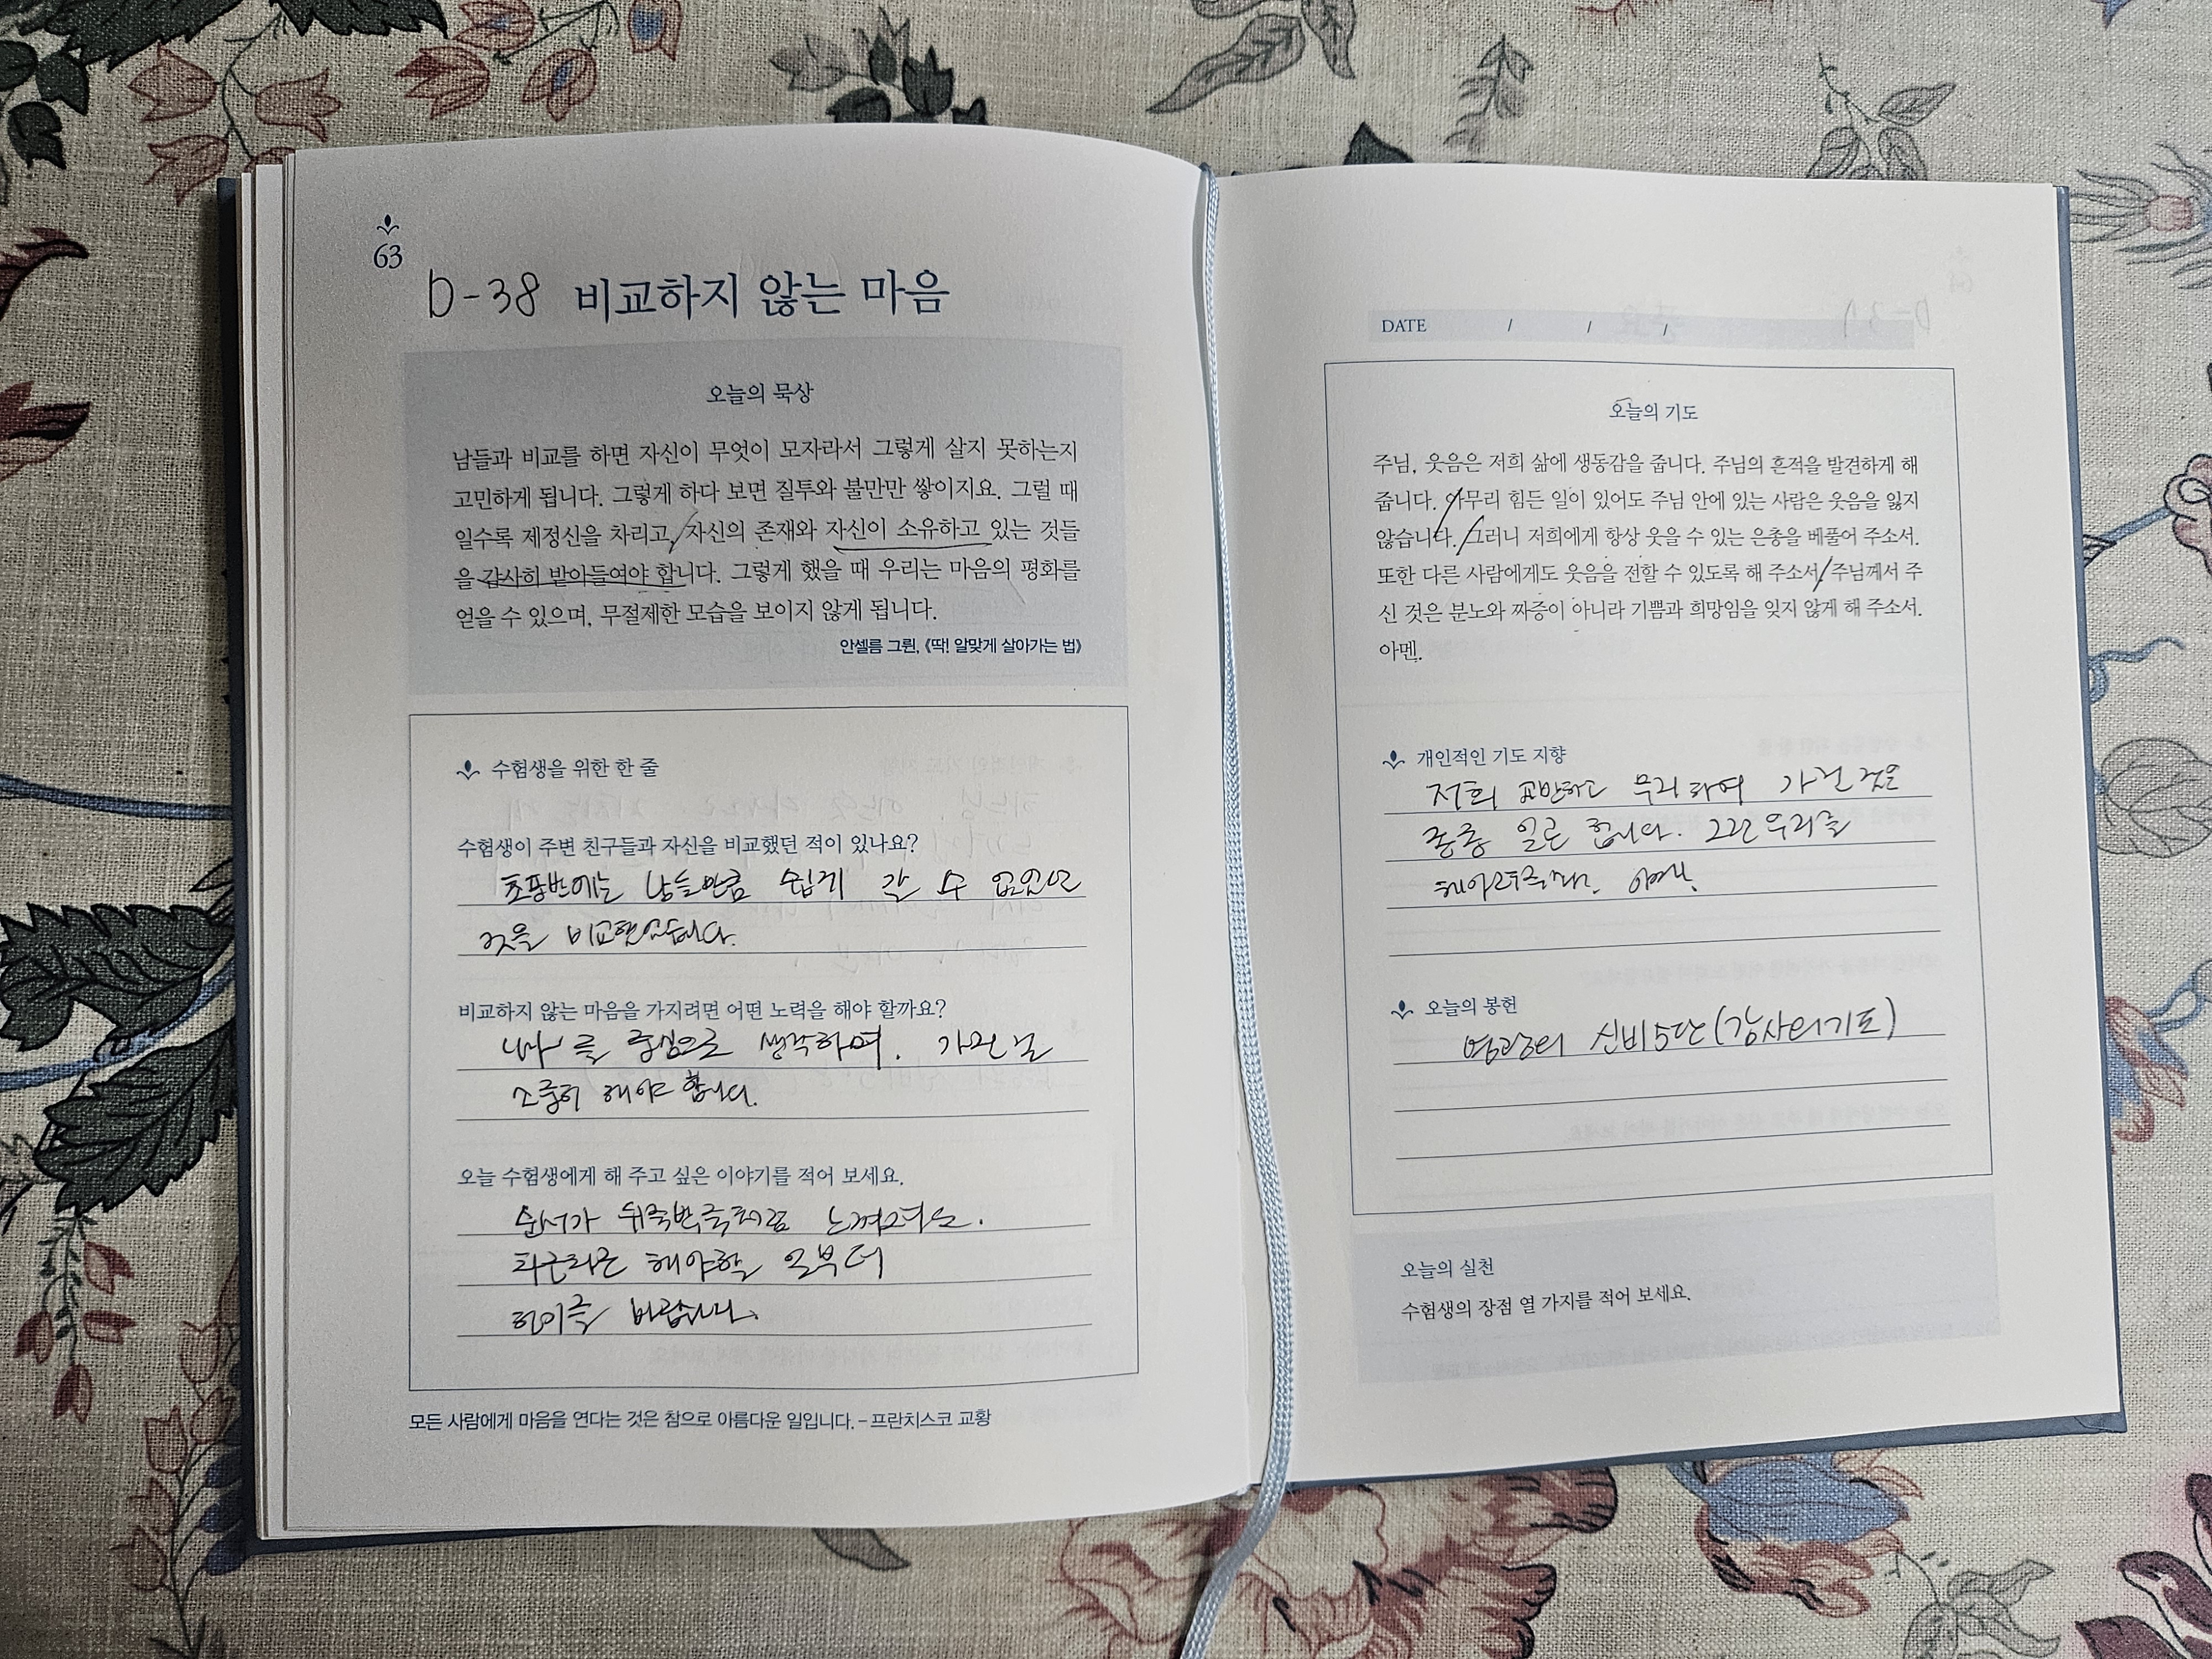 63
D-38 비교하지 않는 마음
오늘의 묵상
남들과 비교를 하면 자신이 무엇이 모자라서 그렇게 살지 못하는지
고민하게 됩니다. 그렇게 하다 보면 질투와 불만만 쌓이지요. 그럴 때
일수록 제정신을 차리고, 자신의 존재와 자신이 소유하고 있는 것들
을 감사히 받아들여야 합니다. 그렇게 했을 때 우리는 마음의 평화를
얻을 수 있으며, 무절제한 모습을 보이지 않게 됩니다.
안셀름 그륀, 《딱! 알맞게 살아가는 법》
수험생을 위한 한 줄
수험생이 주변 친구들과 자신을 비교했던 적이 있나요?
남들만큼 쉽게 갈 수
것을 비교했었습니다.
비교하지 않는 마음을 가지려면 어떤 노력을 해야 할까요?
'나'를 중심으로 생각하며. 가진 걸
소중히 해야 합니다.
오늘 수험생에게 해 주고 싶은 이야기를 적어 보세요.
순서가 뒤죽박죽처럼 느껴져도.
차근차근 해야할 일부터
하기를 바랍니다.
모든 사람에게 마음을 연다는 것은 참으로 아름다운 일입니다. – 프란치스코 교황
DATE / / /
오늘의 기도
주님, 웃음은 저희 삶에 생동감을 줍니다. 주님의 흔적을 발견하게 해
줍니다. 아무리 힘든 일이 있어도 주님 안에 있는 사람은 웃음을 잃지
않습니다. 그러니 저희에게 항상 웃을 수 있는 은총을 베풀어 주소서.
또한 다른 사람에게도 웃음을 전할 수 있도록 해 주소서. 주님께서 주
신 것은 분노와 짜증이 아니라 기쁨과 희망임을 잊지 않게 해 주소서.
아멘.
개인적인 기도 지향
저희 교만하고 무리하여 가진 것을
종종 잃곤 합니다. 그런 우리를
아멘.
오늘의 봉헌
영광의 신비 5단 (감사의 기도)
오늘의 실천
수험생의 장점 열 가지를 적어 보세요.